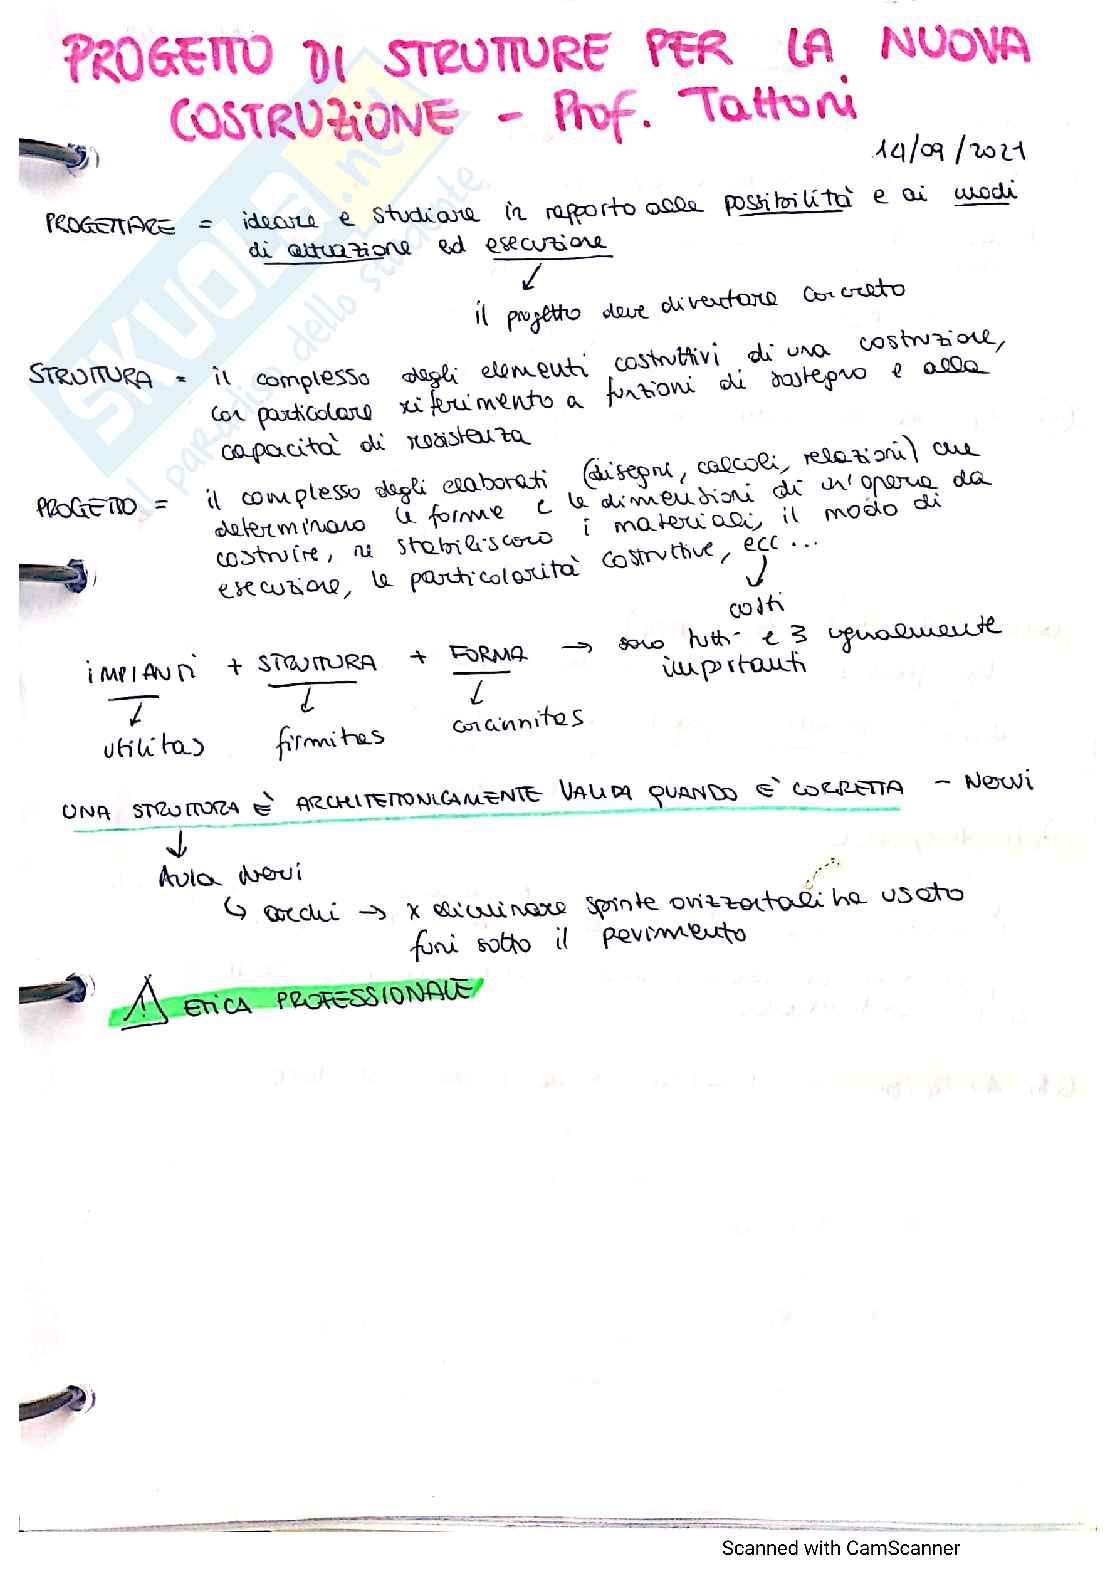 PROGETTO DI STRUTTURE PER LA NUOVA
COSTRUZIONE - Prof. Tattoni
14/09/2021
PROGETTARE = ideare e studiare in rapporto alle possibilità e ai modi
di attuazione ed esecuzione
il progetto deve diventare concreto
STRUTTURA = il complesso degli elementi costruttivi di una costruzione,
con particolare riferimento a funzioni di sostegno e alla
capacità di resistenza
PROGETTO = il complesso degli elaborati (disegni, calcoli, relazioni) che
determinano le forme e le dimensioni di un'opera da
costruire, ne stabiliscono i materiali, il modo di
esecuzione, le particolarità costruttive, ecc...
costi
IMPIANTI + STRUTTURA + FORMA → sono tutti e 3 ugualmente
importanti
utilitas firmitas concinnitas
UNA STRUTTURA È ARCHITETTONICAMENTE VALIDA QUANDO È CORRETTA - Nervi
Aula Nervi
↳ archi → x eliminare spinte orizzontali ha usato
funi sotto il pavimento
⚠ ETICA PROFESSIONALE
SKUOLA.net
il paradiso dello studente
Scanned with CamScanner